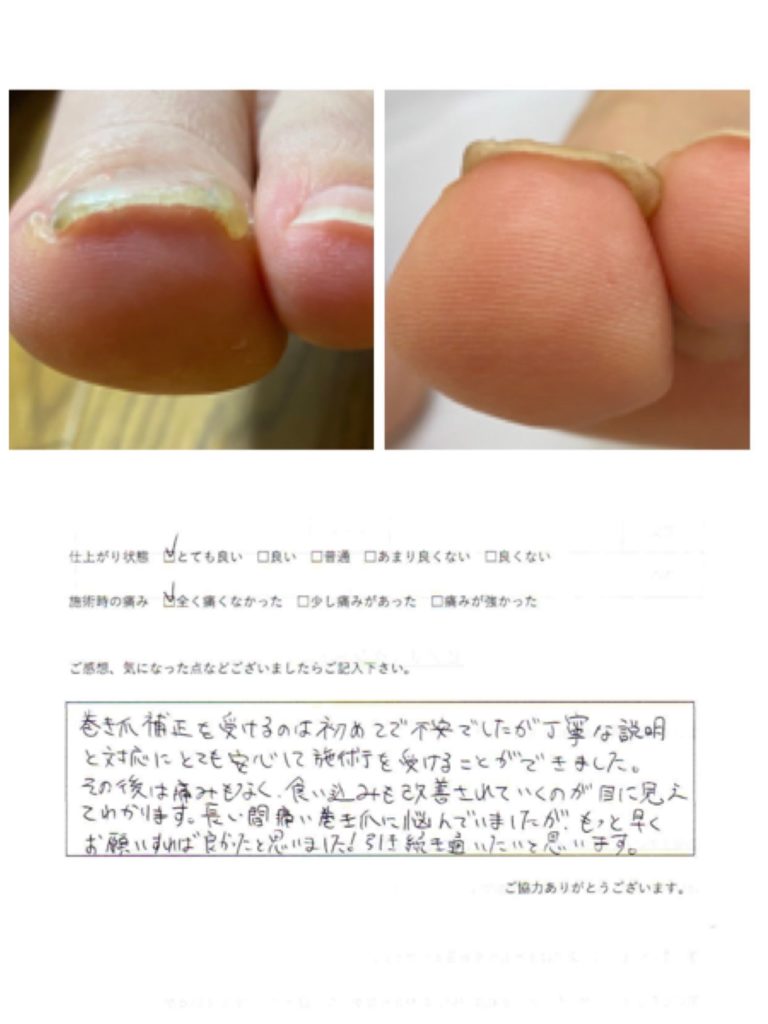 仕上がり状態 ☑とても良い □良い □普通 □あまり良くない □良くない
施術時の痛み ☑全く痛くなかった □少し痛みがあった □痛みが強かった
ご感想、気になった点などございましたらご記入下さい。
巻き爪補正を受けるのは初めてで不安でしたが丁寧な説明
と対応にとても安心して施術を受けることができました。
その後は痛みもなく、食い込みも改善されていくのが目に見え
てわかります。長い間痛い巻き爪に悩んでいましたが、もっと早く
お願いすれば良かったと思いました!引き続き通いたいと思います。
ご協力ありがとうございます。